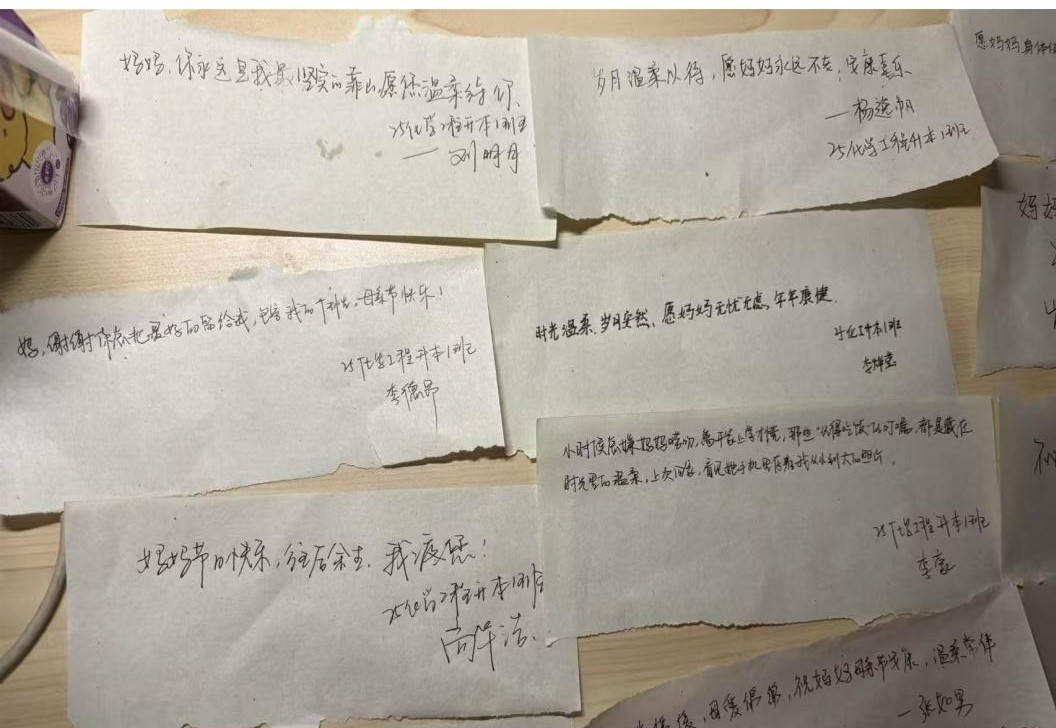 妈妈,你永远是我最坚实的靠山愿你温柔待你、
25化学工程升本1班
—— 刘明月
岁月温柔以待,愿妈妈永远不老,安康喜乐
—杨逸帆
25化学工程升本1班
愿妈妈身体
妈,谢谢你总把最好的留给我,包容我的,母亲节快乐!
25化学工程升本1班
李德昂
时光温柔、岁月安然、愿妈妈无忧无虑,年年康健.
升本1班
李
小时候总嫌妈妈唠叨,离开家上学才懂,那些“记得吃饭”的叮嘱,都是藏在
时光里的温柔,上次回家,看见她手机里存着我从小到大的照片。
25化学工程升本1班
李豪
妈妈节日快乐,往后余生,我疼您!
25化学工程升本1班
妈妈
母爱偶偶,祝妈妈母亲节快乐,温柔常伴
—张如男